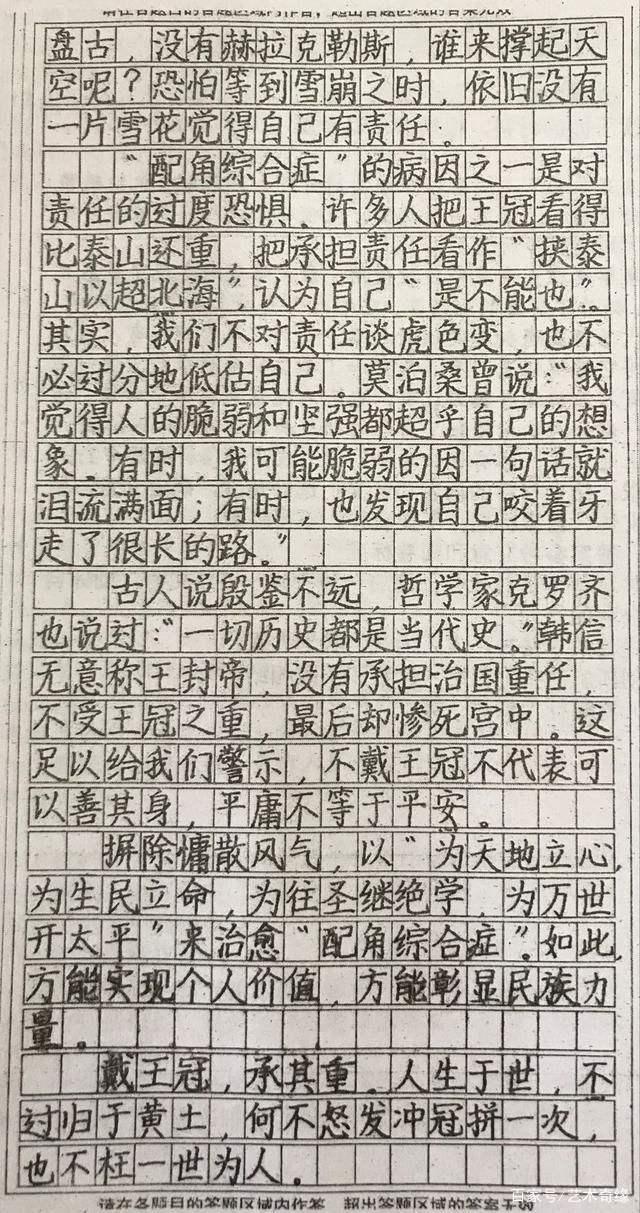 请在各题目的答题区域内作答，超出答题区域的答案无效
盘古，没有赫拉克勒斯，谁来撑起天
空呢？恐怕等到雪崩之时，依旧没有
一片雪花觉得自己有责任。
“配角综合症”的病因之一是对
责任的过度恐惧。许多人把王冠看得
比泰山还重，把承担责任看作“挟泰
山以超北海”，认为自己“是不能也”。
其实，我们不对责任谈虎色变，也不
必过分地低估自己。莫泊桑曾说：“我
觉得人的脆弱和坚强都超乎自己的想
象。有时，我可能脆弱的因一句话就
泪流满面；有时，也发现自己咬着牙
走了很长的路。”
古人说殷鉴不远，哲学家克罗齐
也说过：“一切历史都是当代史。”韩信
无意称王封帝，没有承担治国重任，
不受王冠之重，最后却惨死宫中。这
足以给我们警示，不戴王冠不代表可
以善其身，平庸不等于平安。
摒除慵散风气，以“为天地立心，
为生民立命，为往圣继绝学，为万世
开太平”来治愈“配角综合症”。如此，
方能实现个人价值，方能彰显民族力
量。
戴王冠，承其重。人生于世，不
过归于黄土，何不怒发冲冠拼一次，
也不枉一世为人。
百家号/艺术奇缘
请在各题目的答题区域内作答，超出答题区域的答案无效